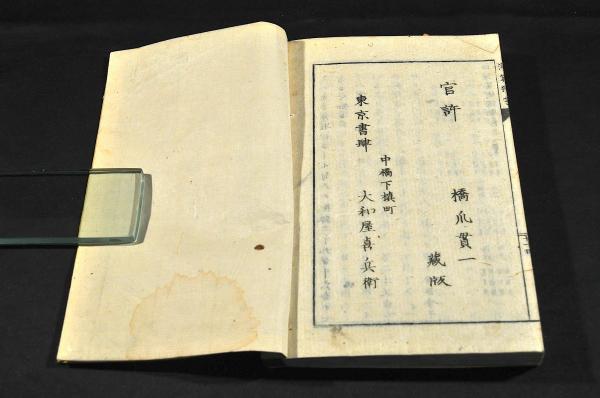 官許
橋爪貫一
蔵版
東京書肆
中橋下槙町
大和屋喜兵衛